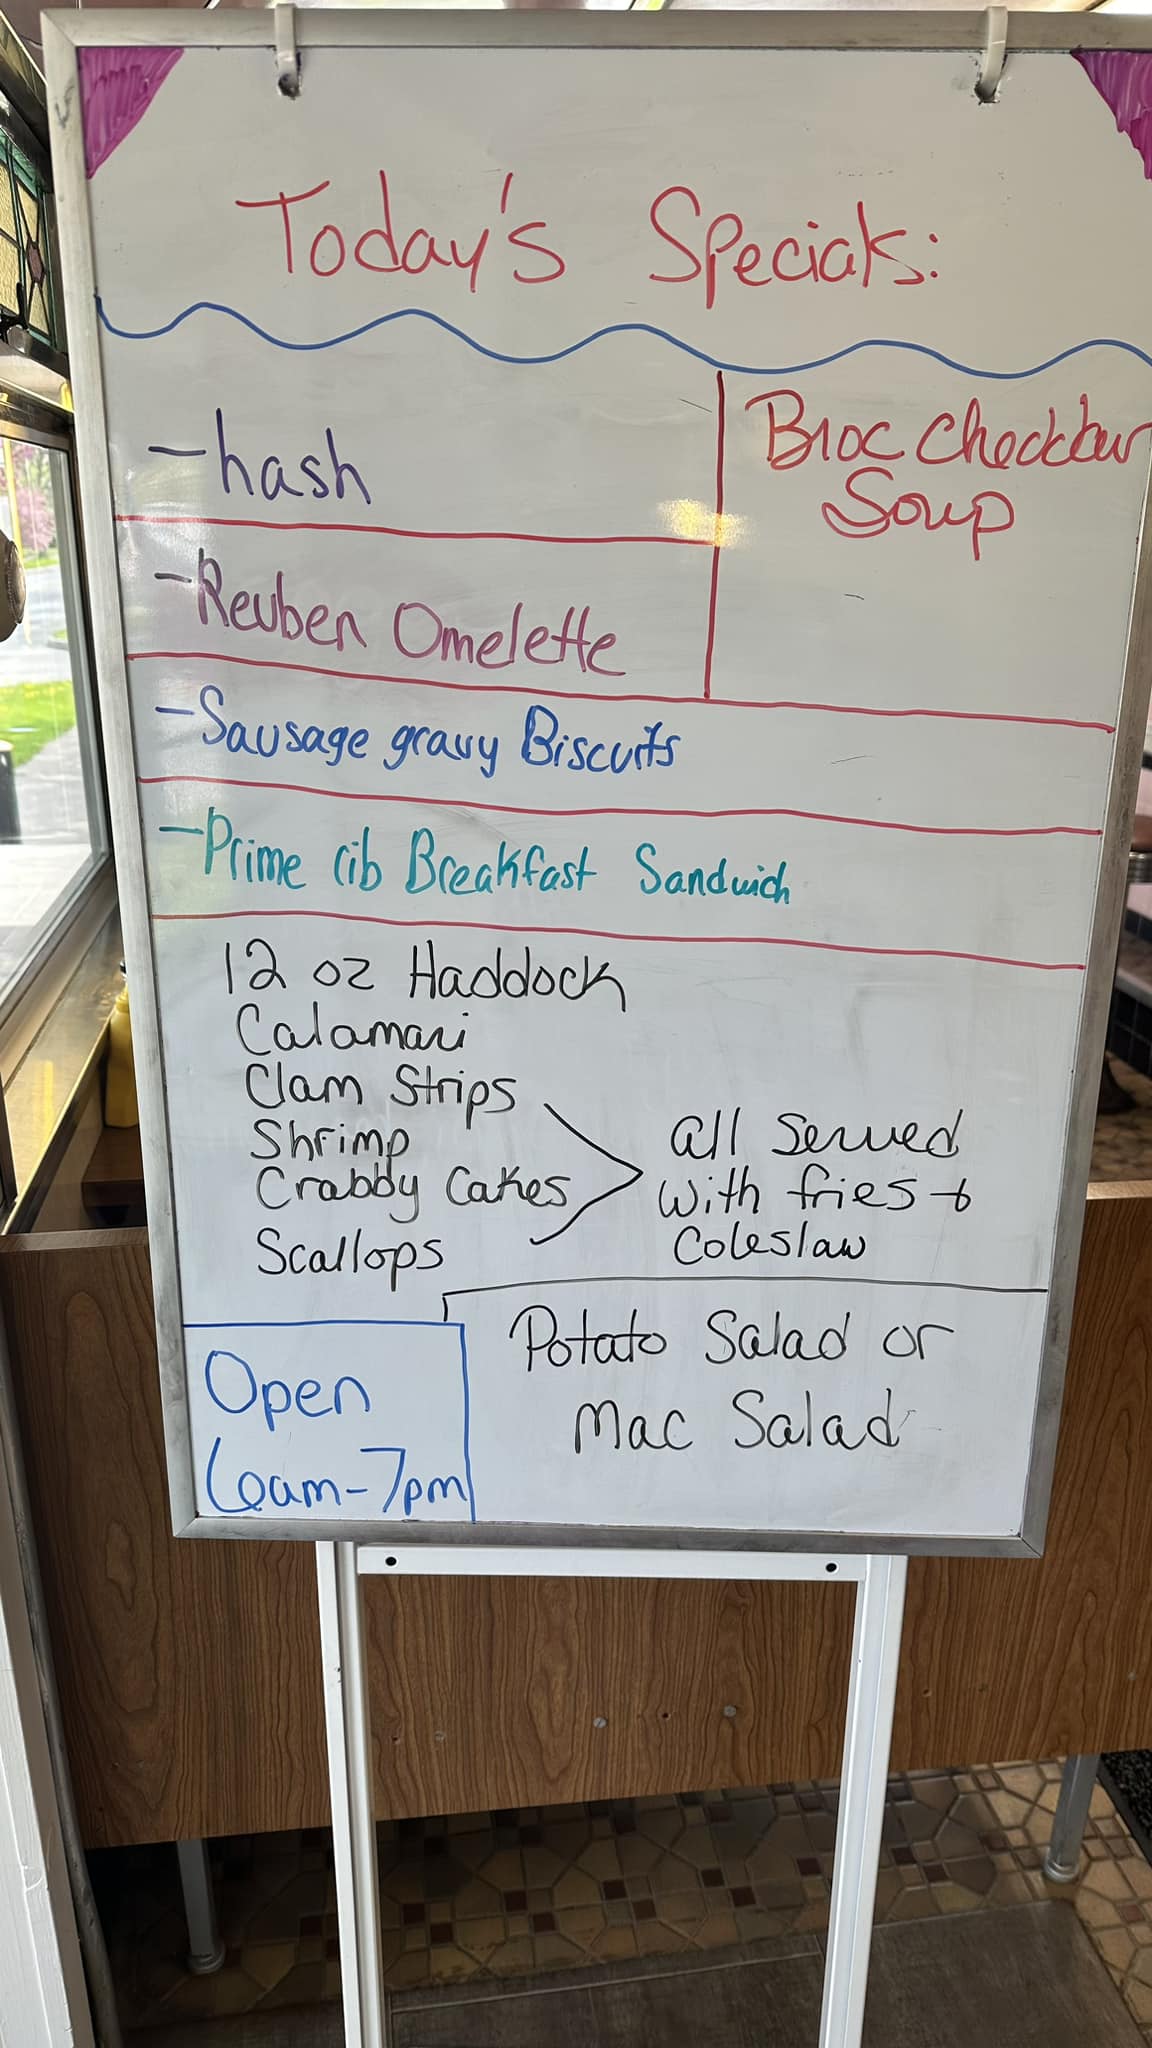 Today's Specials:
-hash
Broc Cheddar
Soup
-Reuben Omelette
-Sausage gravy Biscuits
-Prime rib Breakfast Sandwich
12 oz Haddock
Calamari
Clam Strips
Shrimp
Crabby Cakes
Scallops
all Served
with fries +
Coleslaw
Potato Salad or
Mac Salad
Open
6am-7pm